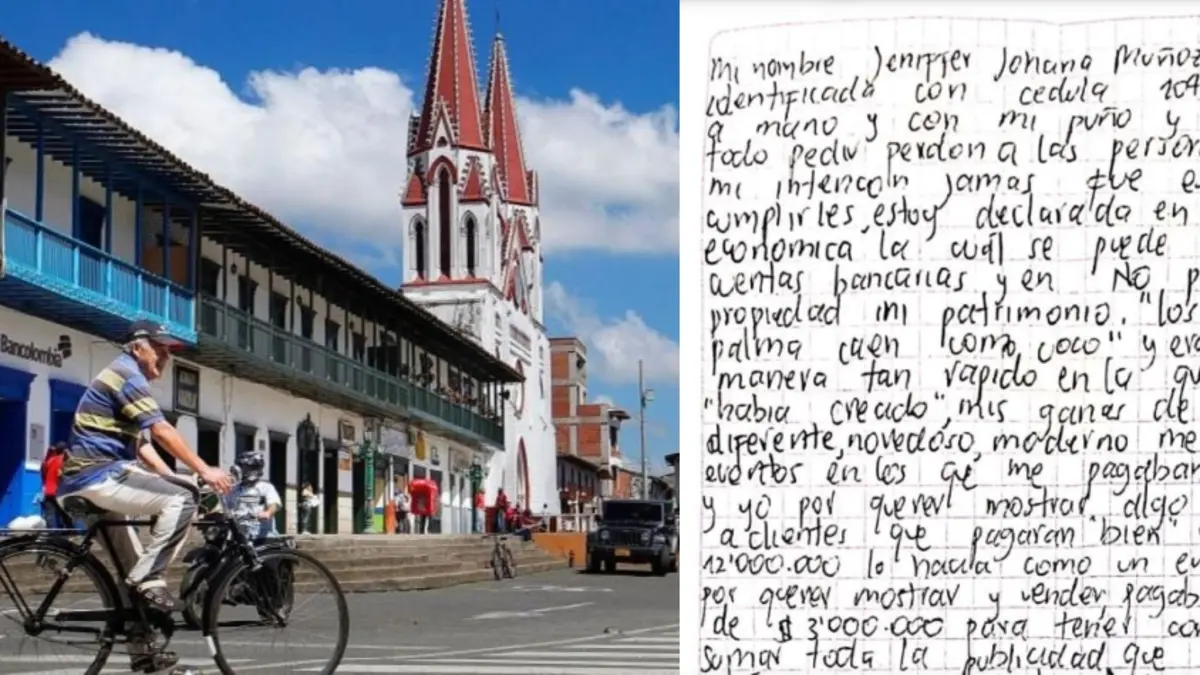 Bancolombia
Mi nombre Jennyfer Johana Muñoz
identificada con cedula 109
a mano y con mi puño y
todo pedir perdon a las person
mi intencoln jamas fue e
cumplirles, estoy declarada en
economica, la cuál se puede
cuentas bancarias y en NO p
propiedad mi patrimonio. "los
palma caen como coco" y era
manera tan rapido en la qu
"habia creado", mis ganas de
diferente, novedoso, moderno me
eventos en los qe me pagaban
y yo por querer mostrar algo
a clientes que pagaran "bien"
12'000.000 lo hacia como un ev
por querer mostrar y vender, pagab
de $ 3'000.000 para tener co
sumar toda la publicidad que